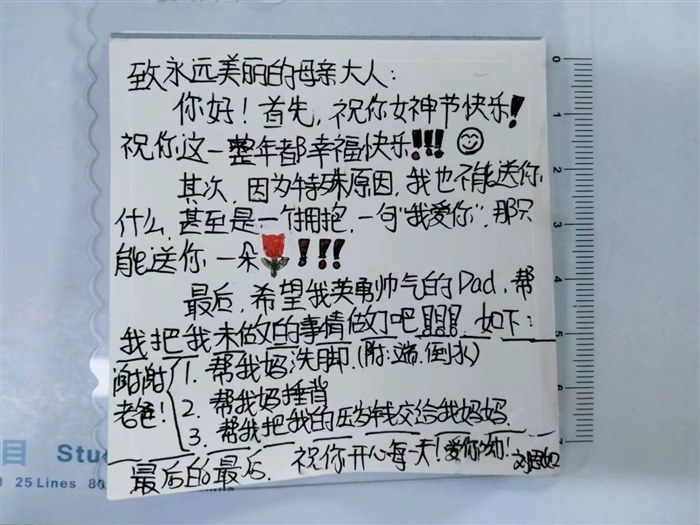 致永远美丽的母亲大人:
你好!首先,祝你女神节快乐!
祝你这一整年都幸福快乐!!!
其次,因为特殊原因,我也不能送你
什么,甚至是一个拥抱,一句“我爱你”,那只
能送你一朵!!!
最后,希望我英勇帅气的Dad,帮
我把我未做的事情做了吧!!!!如下:
谢谢老爸!
1. 帮我妈洗脚.(附:端.倒水)
2. 帮我妈捶背
3. 帮我把我的压岁钱交给我妈妈
最后的最后.祝你开心每一天!爱你呦!
0
1
2
3
4
5
6
7
目 Stu
25 Lines 80